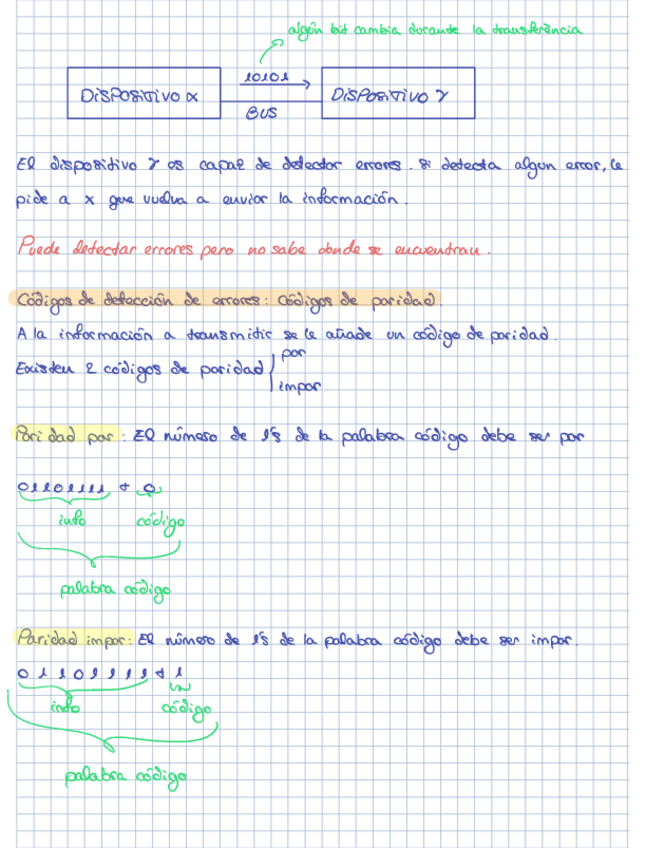 algún bit cambia durante la transferência
10101
DISPOSITIVO X
BUS
DISPOSITIVO Y
El dispositivo Y es capaz de detectar errores. Si detecta algun error, le
pide a x que vuelva a enviar la información.
Puede detectar errores pero no sabe donde se encuentran.
Códigos de detección de errores: Códigos de paridad
A la información a transmitir se le añade un código de paridad.
Existen 2 códigos de paridad
par
impar
Paridad par: El número de 1's de la palabra código debe ser par
01101111 + 0
info
código
palabra código
Paridad impar: El número de 1's de la palabra código debe ser impar.
01101111 + 1
info
código
palabra código